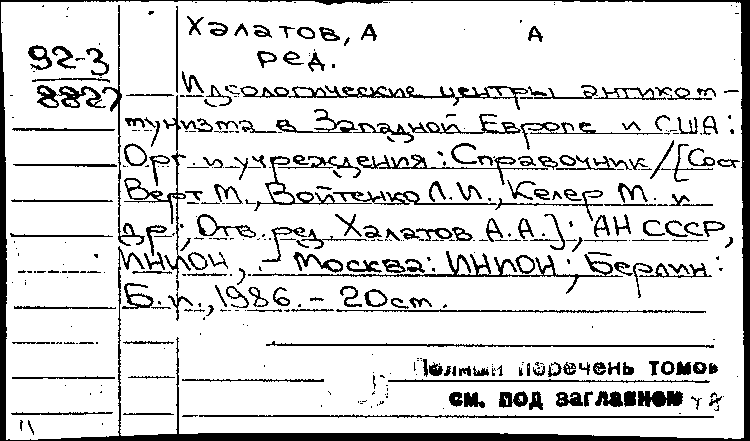 Халатов, А А
92-3 ред.
8827 Идеологические центры антиком-
мунизма в Западной Европе и США:
Орг. и учреждения: Справочник / [Сост
Верт М., Войтенко Л.И., Келер М. и
др.; Отв. ред. Халатов А.А.]; АН СССР,
ИНИОН, - Москва: ИНИОН; Берлин:
Б.и., 1986. - 20 см.
Полный перечень томов
см. под заглавием